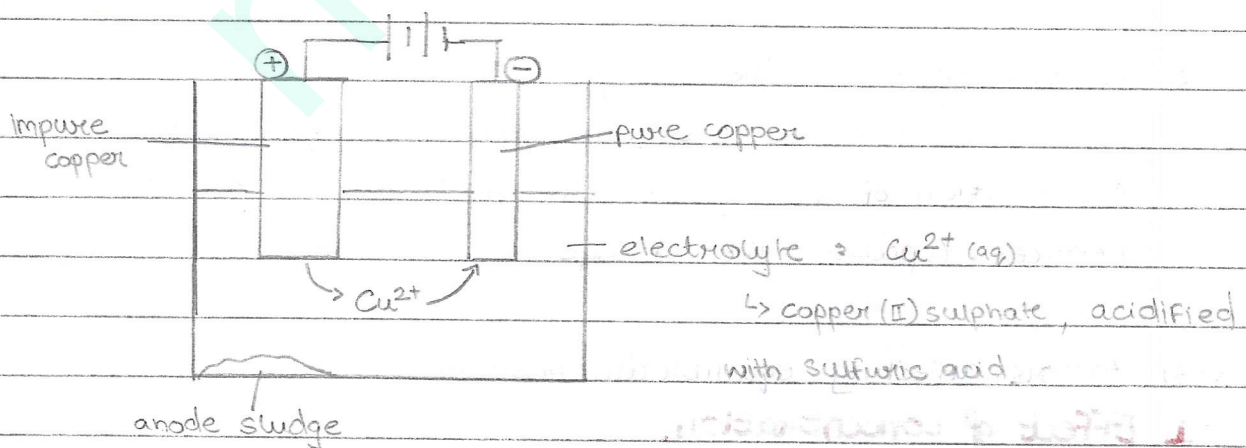 +
-
impure
copper
pure copper
electrolyte : Cu²⁺ (aq)
Cu²⁺
↳ copper (II) sulphate, acidified
with sulfuric acid.
anode sludge